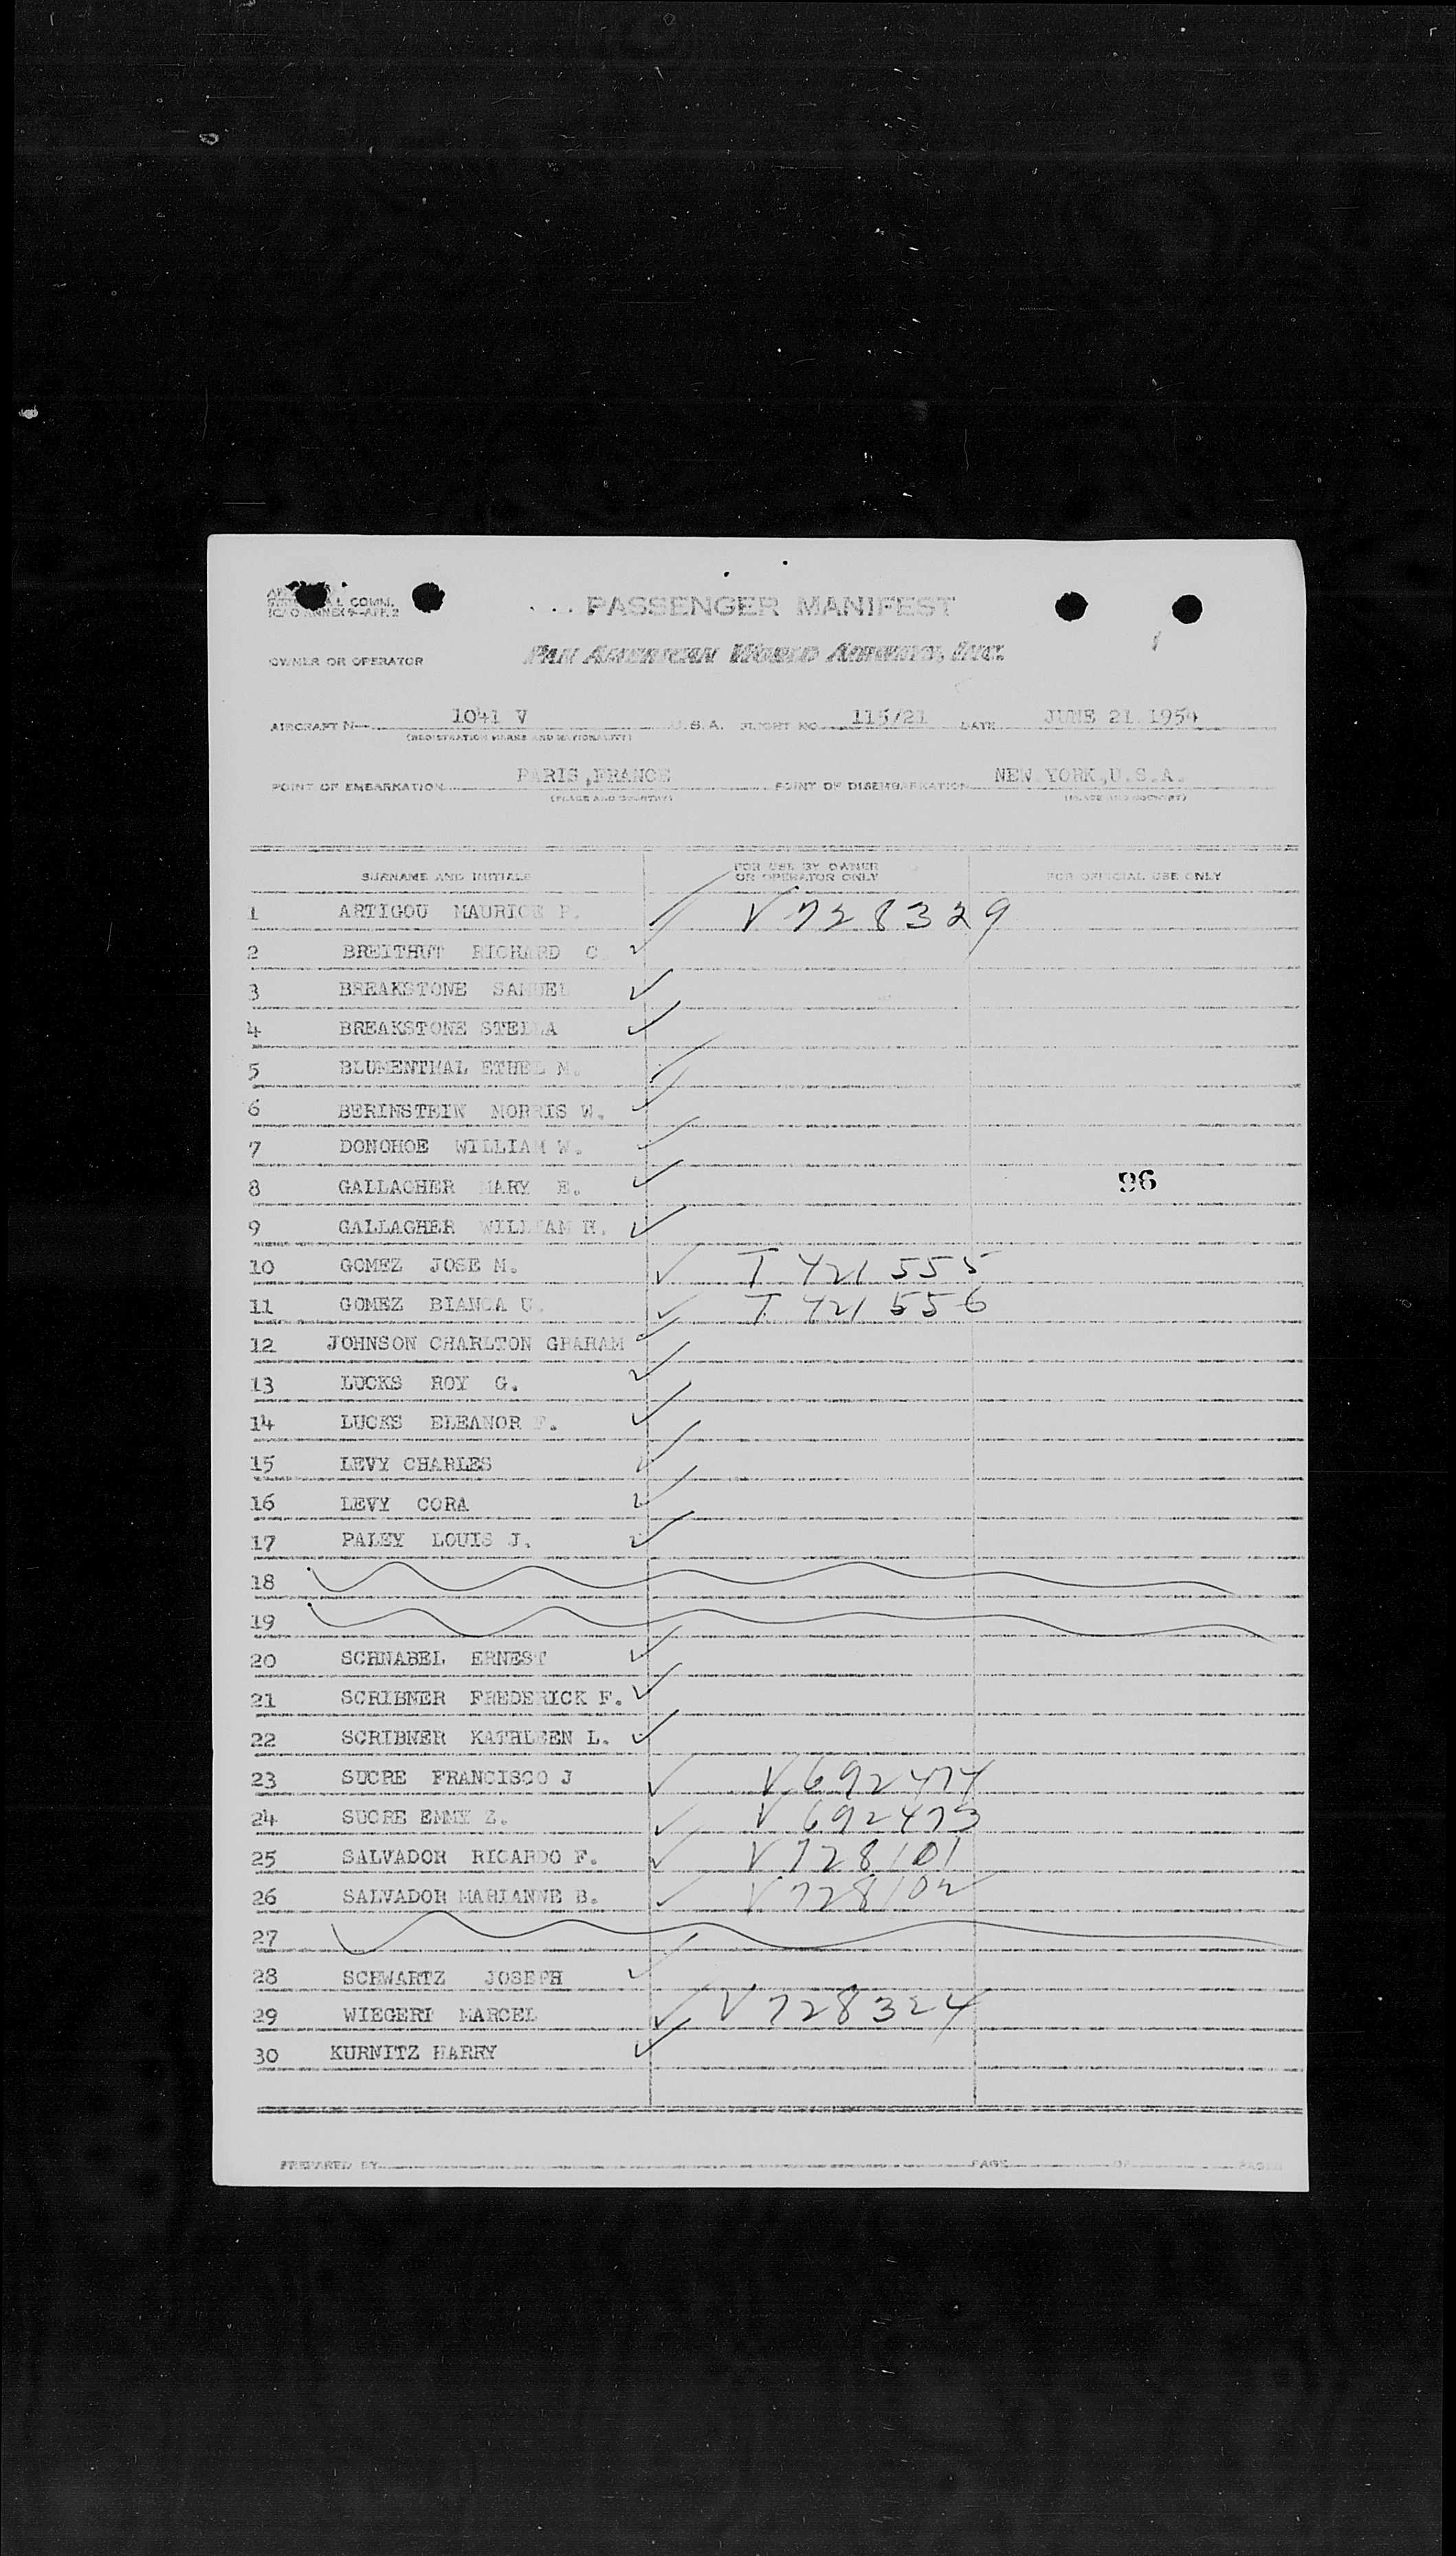 L COMM.
ICAO ANNEX 9-APP. 2
PASSENGER MANIFEST
OWNER OR OPERATOR PAN AMERICAN WORLD AIRWAYS, INC.
AIRCRAFT N— 1041 V U.S.A. FLIGHT NO 115/21 DATE JUNE 21 1954
(REGISTRATION MARKS AND NATIONALITY)
POINT OF EMBARKATION PARIS,FRANCE POINT OF DISEMBARKATION NEW YORK,U.S.A.
(PLACE AND COUNTRY) (PLACE AND COUNTRY)
SURNAME AND INITIALS FOR USE BY OWNER OR OPERATOR ONLY FOR OFFICIAL USE ONLY
1 ARTIGOU MAURICE P. V 728329
2 BREITHUT RICHARD C.
3 BREAKSTONE SAMUEL
4 BREAKSTONE STELLA
5 BLUMENTHAL ETHEL M.
6 BERINSTEIN MORRIS W.
7 DONOHOE WILLIAM W.
8 GALLAGHER MARY E. 96
9 GALLAGHER WILLIAM H.
10 GOMEZ JOSE M. T 421 555
11 GOMEZ BIANCA U. T 421 556
12 JOHNSON CHARLTON GRAHAM
13 LUCKS ROY G.
14 LUCKS ELEANOR F.
15 LEVY CHARLES
16 LEVY CORA
17 PALEY LOUIS J.
18
19
20 SCHNABEL ERNEST
21 SCRIBNER FREDERICK F.
22 SCRIBNER KATHLEEN L.
23 SUCRE FRANCISCO J V 692474
24 SUCRE EMMY Z. V 692473
25 SALVADOR RICARDO F. V 728101
26 SALVADOR MARIANNE B. V 728102
27
28 SCHWARTZ JOSEPH
29 WIEGERT MARCEL V 728324
30 KURNITZ HARRY
PREPARED BY PAGE OF PAGES